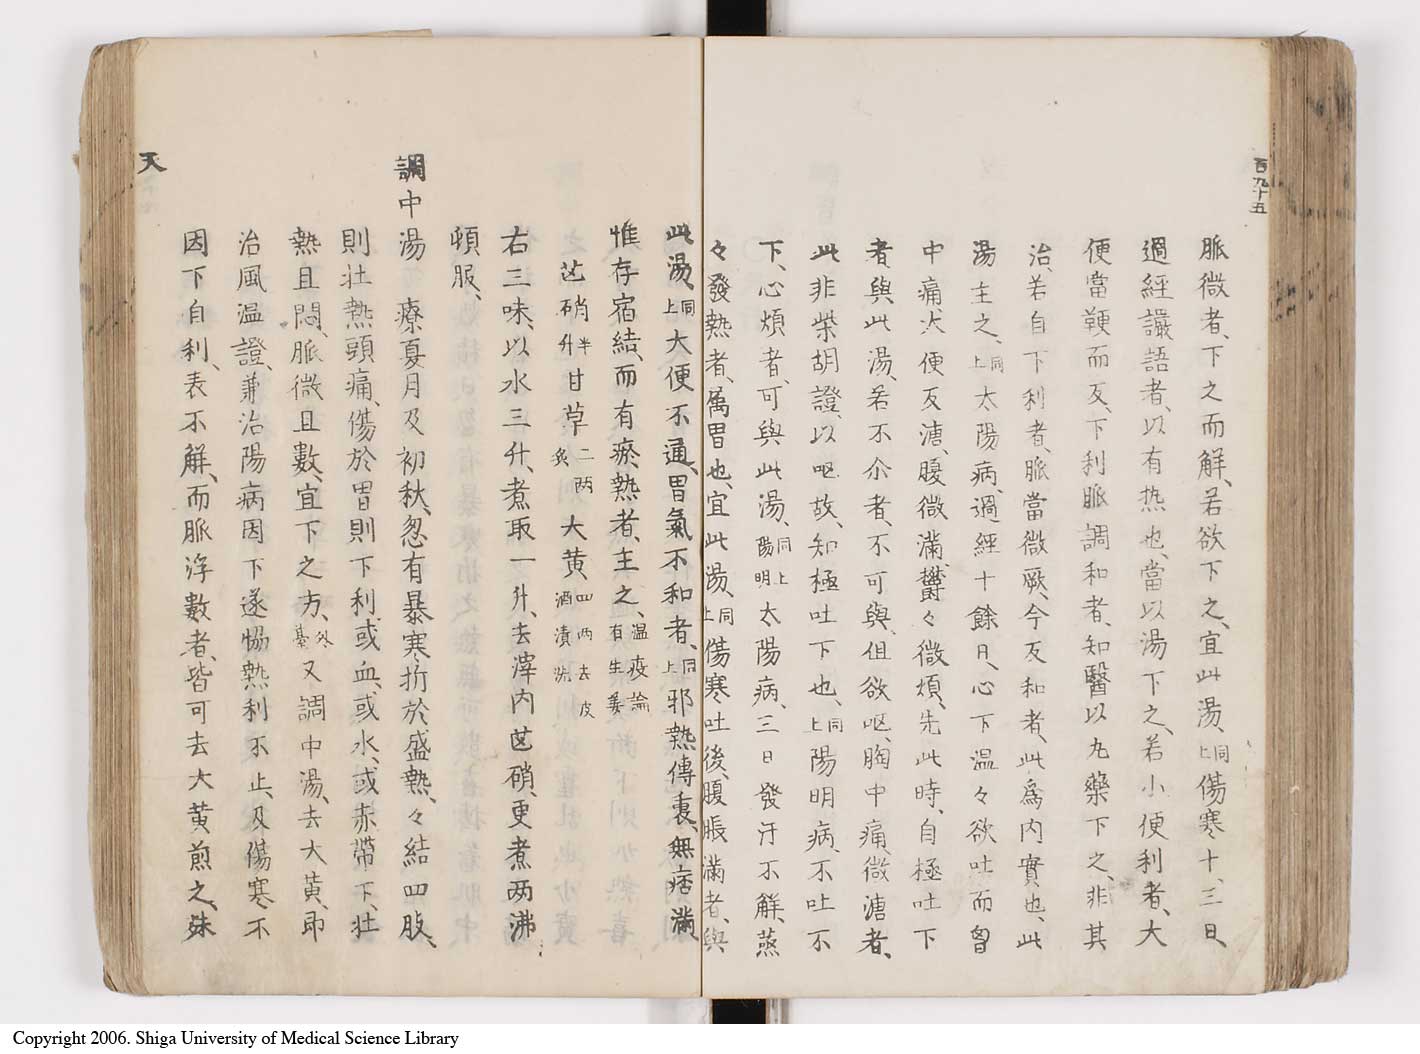 百九十五
脈微者、下之而解、若欲下之、宜此湯、同上傷寒十三日、
過經讝語者、以有热也、當以湯下之、若小便利者、大
便當鞕而反下利、脈調和者、知醫以丸藥下之、非其
治、若自下利者、脈當微厥、今反和者、此爲内實也、此
湯主之、同上太陽病、過經十餘日、心下温々欲吐而胷
中痛、大便反溏、腹微滿、欝々微煩、先此時、自極吐下
者、與此湯、若不尒者、不可與、但欲呕、胸中痛、微溏者、
此非柴胡證、以呕故、知極吐下也、同上陽明病、不吐不
下、心煩者、可與此湯、同上陽明太陽病、三日發汗不觧、蒸
々發熱者、属胃也、宜此湯、同上傷寒吐後、腹脹滿者、與
此湯、同上大便不通、胃氣不和者、同上邪熱傳裏、無痞滿
惟存宿結、而有瘀熱者、主之、温疫論有生姜
芒硝半升甘草二両炙大黄四両去皮酒漬洗
右三味、以水三升、煮取一升、去滓内芒硝、更煮两沸
頓服、
調中湯　療夏月及初秋、忽有暴寒折於盛熱、々結四肢、
則壮熱頭痛、傷於胃則下利、或血、或水、或赤帶下、壮
熱且悶、脈微且數、宜下之方、外臺又調中湯、去大黄、即
治風温證、兼治陽病因下遂恊熱利不止、及傷寒不
因下自利、表不解、而脈浮數者、皆可去大黄煎之、殊
天
Copyright 2006. Shiga University of Medical Science Library